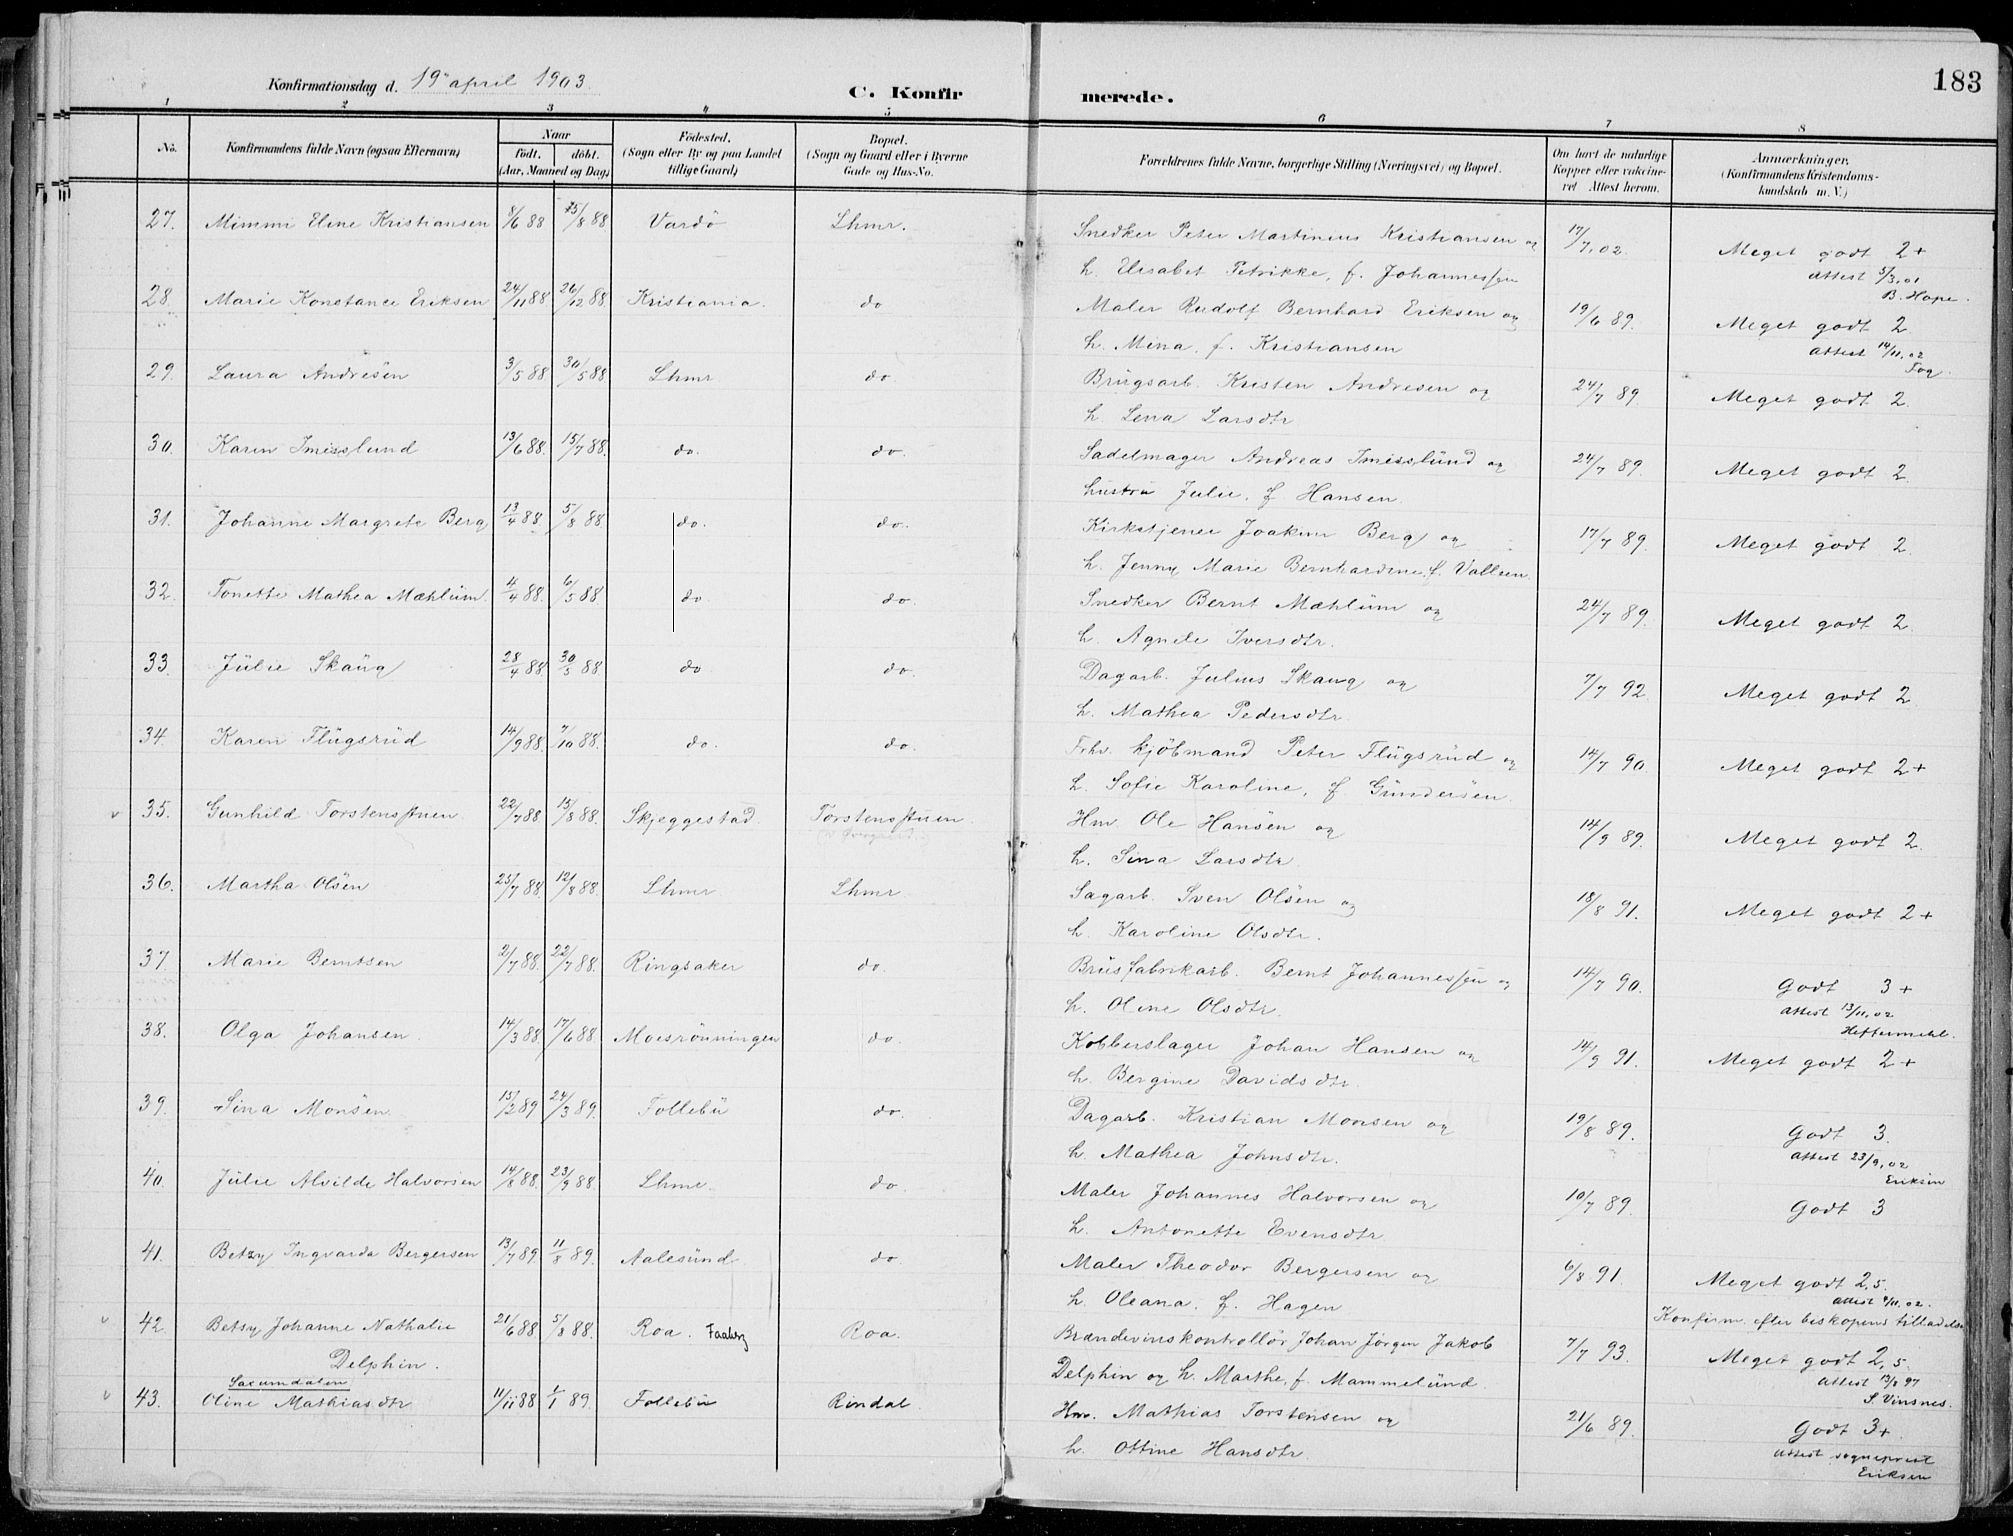 183
Konfirmationsdag d. 19 april 1903.
C. Konfir merede.
1 2 3 4 5 6 7 8
No. Konfirmandens fulde Navn (ogsaa Efternavn) Naar Födested. Bopæl. Forældrenes fulde Navne, borgerlige Stilling (Næringsvei) og Bopæl. Om havt de naturlige Anmærkninger.
födt. döbt. (Sogn eller By og paa Landet (Sogn og Gaard eller i Byerne Kopper eller vakcine- (Konfirmandens Kristendoms-
(Aar, Maaned og Dag) tillige Gaard) Gade og Hus-No. ret Attest herom. kundskab m. V.)
27. Mimmi Eline Kristiansen 8/6 88 15/8 88 Vardö Lhmr. Snedker Peter Martinius Kristiansen og 17/7.02. Meget godt 2+
h. Elisabet Petrikke, f. Johannessen Attest 5/3.01
B. Hope.
28. Marie Konstance Eriksen 24/11 88 26/12 88 Kristiania. do Maler Rudolf Bernhard Eriksen og 19/6 89. Meget godt 2
h. Mina, f. Kristiansen Attest 14/11.02
29. Laura Andresen 3/5 88 30/5 88 Lhmr do Brugsarb. Kristen Andresen og 24/7 89 Meget godt 2
h. Lena Larsdtr
30. Karen Imisslund 13/6 88. 15/7 88. do. do. Sadelmager Andreas Imisslund og 24/7 89. Meget godt 2
hustru Julie, f Hansen.
31. Johanne Margrete Berg 13/4 88. 5/8 88 do. do. Kirketjener Joakim Berg og 17/7 89. Meget godt 2.
h. Jenny Marie Bernhardine, f. Vallsen
32. Tonette Mathea Mæhlum. 4/4 88. 6/5 88 do. do. Snedker Bernt Mæhlum og 24/7 89. Meget godt 2
h. Agnete Iversdtr.
33. Julie Skaug 28/4 88 30/5 88 do do. Dagarb. Julius Skaug og 7/7 92. Meget godt 2
h. Mathea Pedersdtr.
34. Karen Flugsrud 14/9 88. 7/10 88. do. do. Frhv. kjöbmand Peter Flugsrud og 14/7 90 Meget godt 2+
h. Sofie Karoline, f Gundersen.
v 35. Gunhild Torstensstuen. 22/7 88 15/8 88. Skjeggestad Torstensstuen. Hm. Ole Hansen og 14/9 89. Meget godt 2.
h. Sina Larsdtr.
36. Martha Olsen 25/7 88 12/8 88. Lhmr Lhmr Sagarb. Sven Olsen og 18/8 91. Meget godt 2+
h. Karoline Olsdtr.
37. Marie Berntsen 2/7 88. 22/7 88. Ringsaker do. Brusfabrikarb. Bernt Johannessen og 14/7 90. Godt 3+
h. Oline Olsdtr. Attest 13/11.02
Heftermehl.
38. Olga Johansen. 14/3 88. 17/6 88 Moesrönningen do. Kobberslager Johan Hansen og 14/9 91. Meget godt 2+
h. Bergine Davidsdtr.
39. Sina Monsen 15/2 89 24/3 89. Follebu do. Dagarb. Kristian Monsen og 19/8 89. Godt 3.
h. Mathea Johnsdtr. Attest 23/9.02
Eriksen
40. Julie Alvilde Halvorsen 14/8 88. 23/9 88. Lhmr. do. Maler Johannes Halvorsen og 10/7 89. Godt 3
h. Antonette Evensdtr
41. Betzy Ingvarda Bergersen 13/7 89 11/8 89. Aalesund do Maler Theodor Bergersen og 6/8 91. Meget godt 2,5.
h. Oleana, f. Hagen Attest 4/11.02.
Konfirm. efter biskopens tilladelse
v 42. Betsy Johanne Nathalie 21/6 88 5/8 88. Roa. Faaberg Roa. Brændevinskontrollör Johan Jörgen Jakob 7/7 93. Meget godt 2,5
Delphin. Delphin og h. Marthe, f. Mammelund. Attest 13/8 97
S. Vinsnes.
Saxumdalen
v 43. Oline Mathiasdtr 11/11 88 1/1 89. Follebu Rindal Hm. Mathias Torstensen og 21/6 89. Godt 3+
h. Ottine Hansdtr. Attest sogneprest
Eriksen